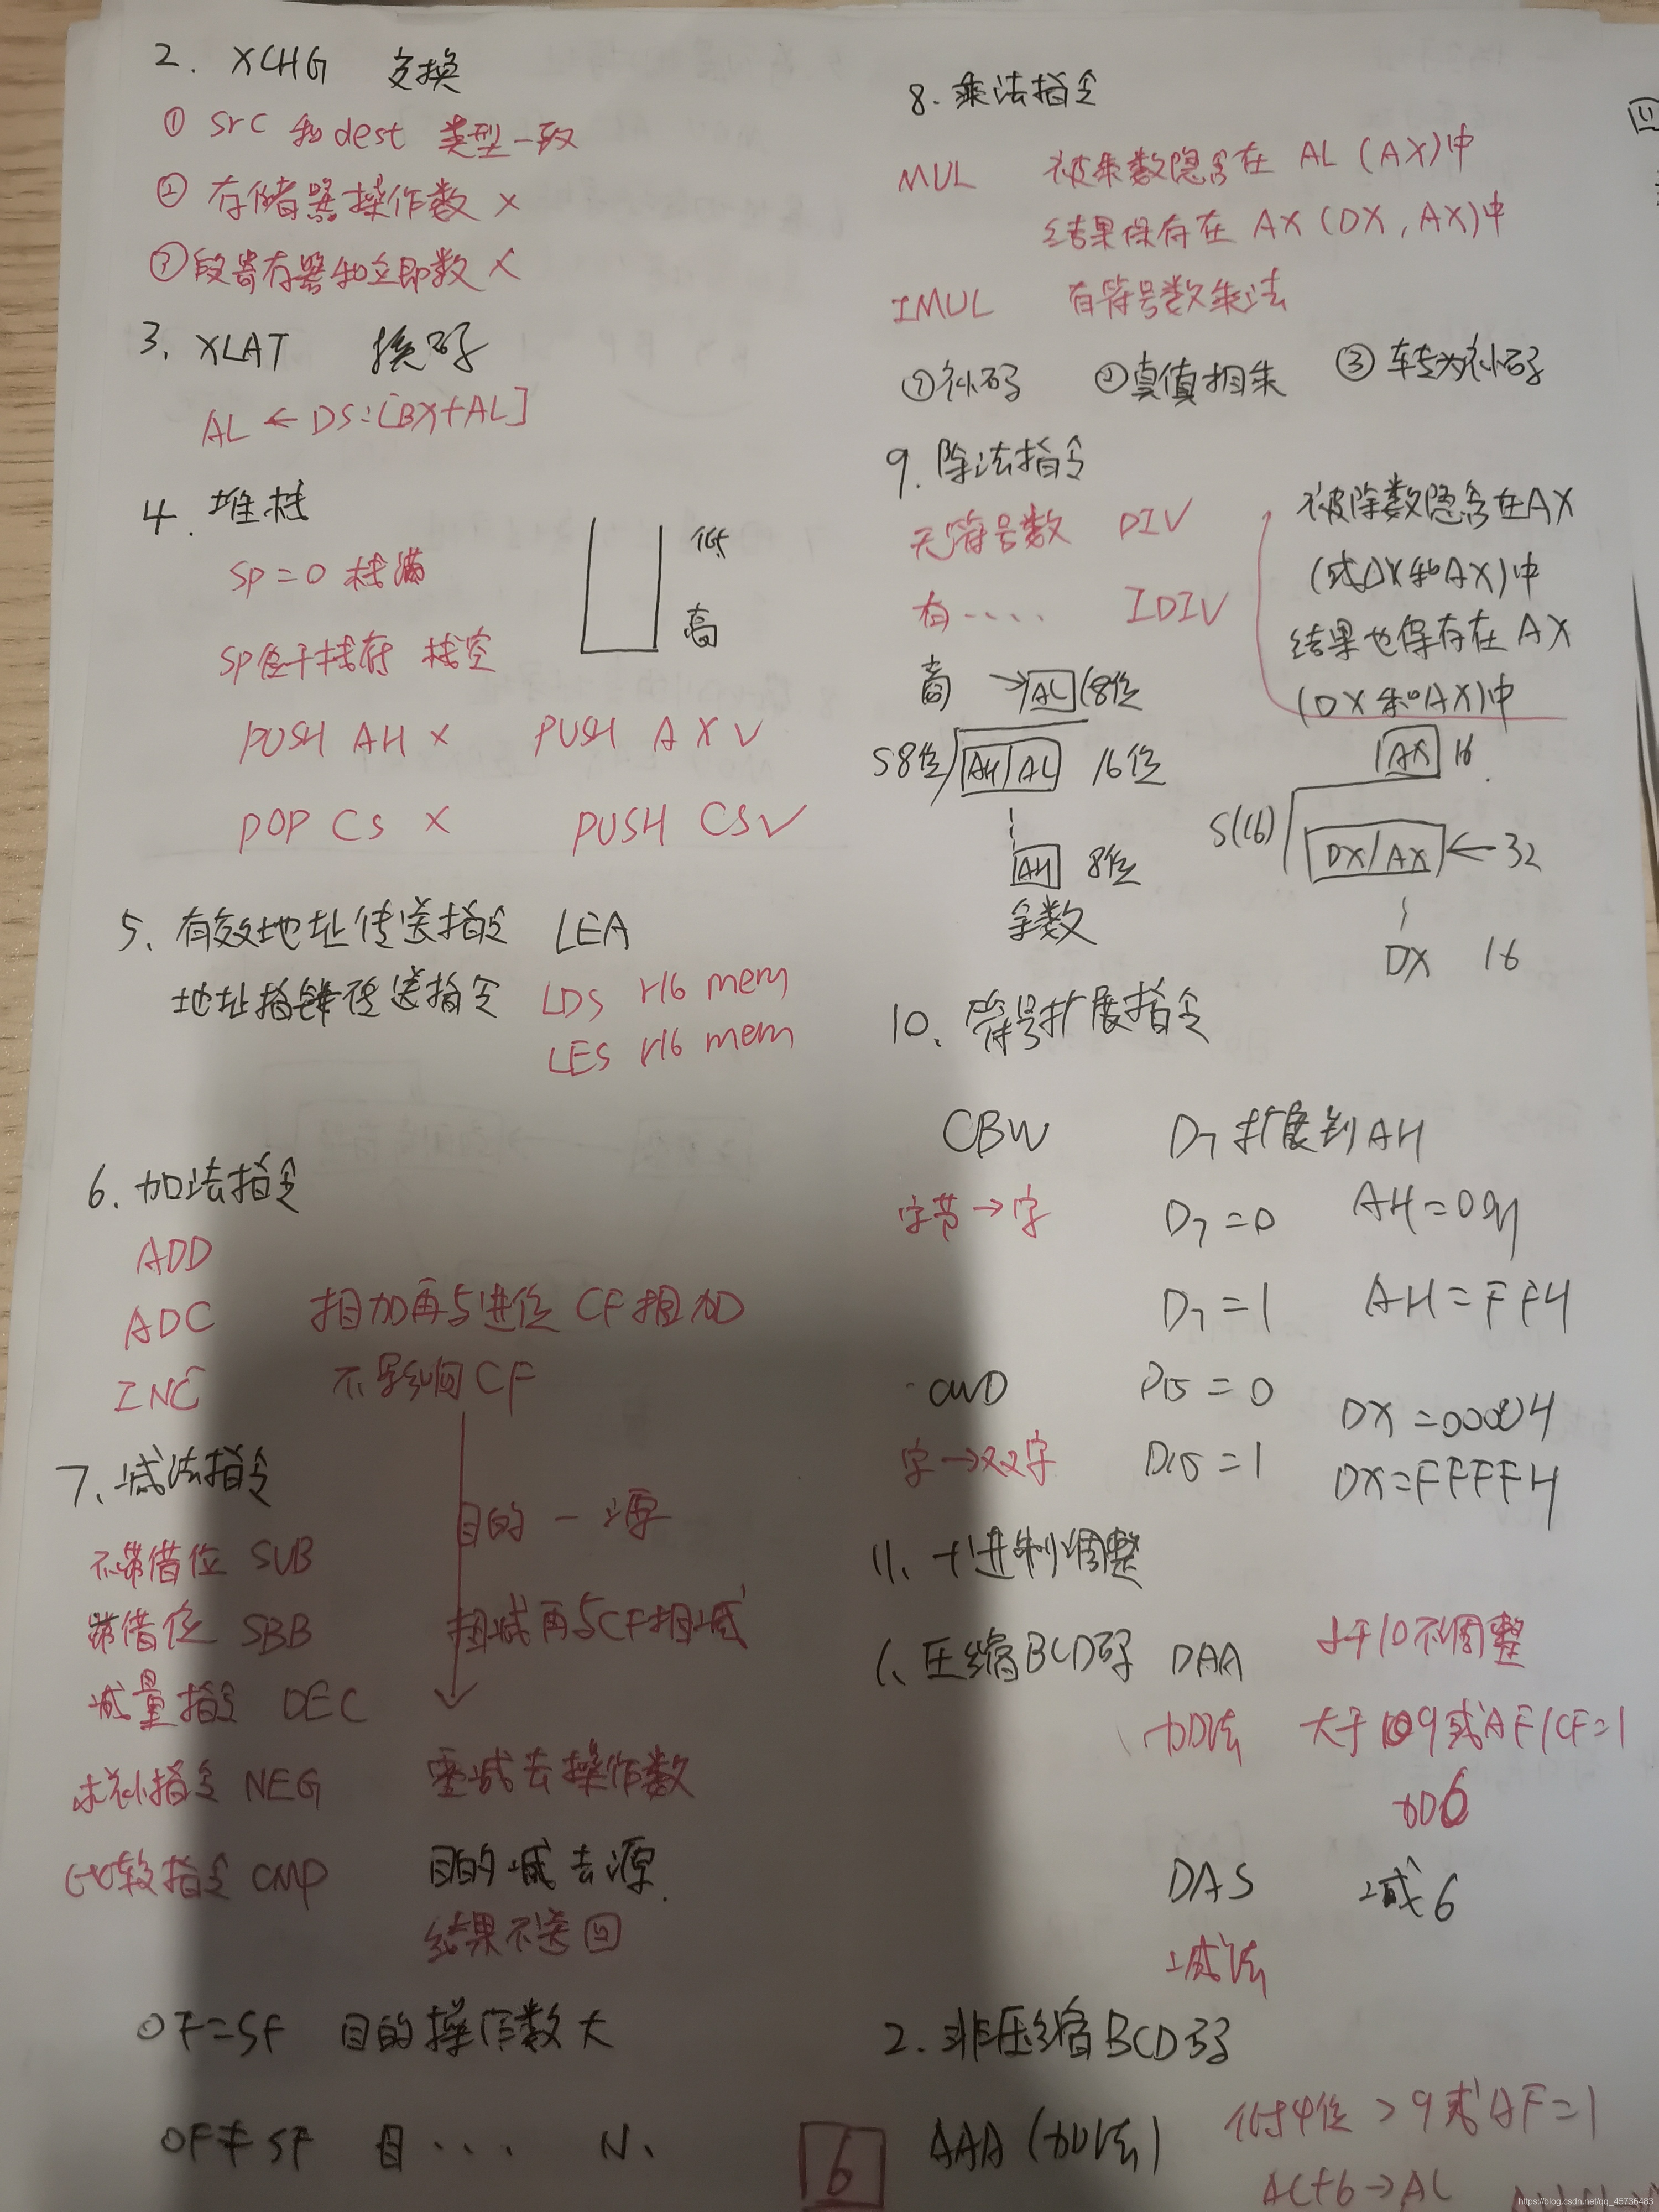 2. XCHG 交换
① src 和 dest 类型一致
② 存储器操作数 ×
③ 段寄存器和立即数 ×
3. XLAT 换码
AL ← DS:[BX+AL]
4. 堆栈
SP=0 栈满
低
高
SP 栈空
PUSH AH × PUSH AX √
POP CS × PUSH CS √
5. 有效地址传送指令 LEA
地址指针传送指令 LDS r16 mem
LES r16 mem
6. 加法指令
ADD
ADC 相加再与进位CF相加
INC 不影响CF
7. 减法指令
目的-源
不带借位 SUB
带借位 SBB 相减再与CF相减
减量指令 DEC
求补指令 NEG 零减去操作数
比较指令 CMP 目的减去源.
结果不送回
OF=SF 目的操作数大
OF≠SF 目.... 小.
6
8. 乘法指令
MUL 被乘数隐含在 AL (AX)中
结果保存在 AX (DX, AX)中
IMUL 有符号数乘法
①补码 ②真值相乘 ③转为补码
9. 除法指令
无符号数 DIV
有..... IDIV
被除数隐含在AX
(或DX和AX)中
结果也保存在AX
(DX和AX)中
商 → AL (8位
S8位 AH/AL 16位
AH 8位
余数
AX 16.
S(16) DX/AX ← 32
DX 16
10. 符号扩展指令
CBW D7扩展到AH
字节→字 D7=0 AH=00H
D7=1 AH=FFH
CWD D15=0 DX=0000H
字→双字 D15=1 DX=FFFFH
11. 十进制调整
1、压缩BCD码 DAA 小于10不调整
加法 大于 9或AF/CF=1
加6
DAS 减6
减法
2. 非压缩BCD码
AAA (加法) 低4位>9或AF=1
AL+6→AL
https://blog.csdn.net/qq_45736483